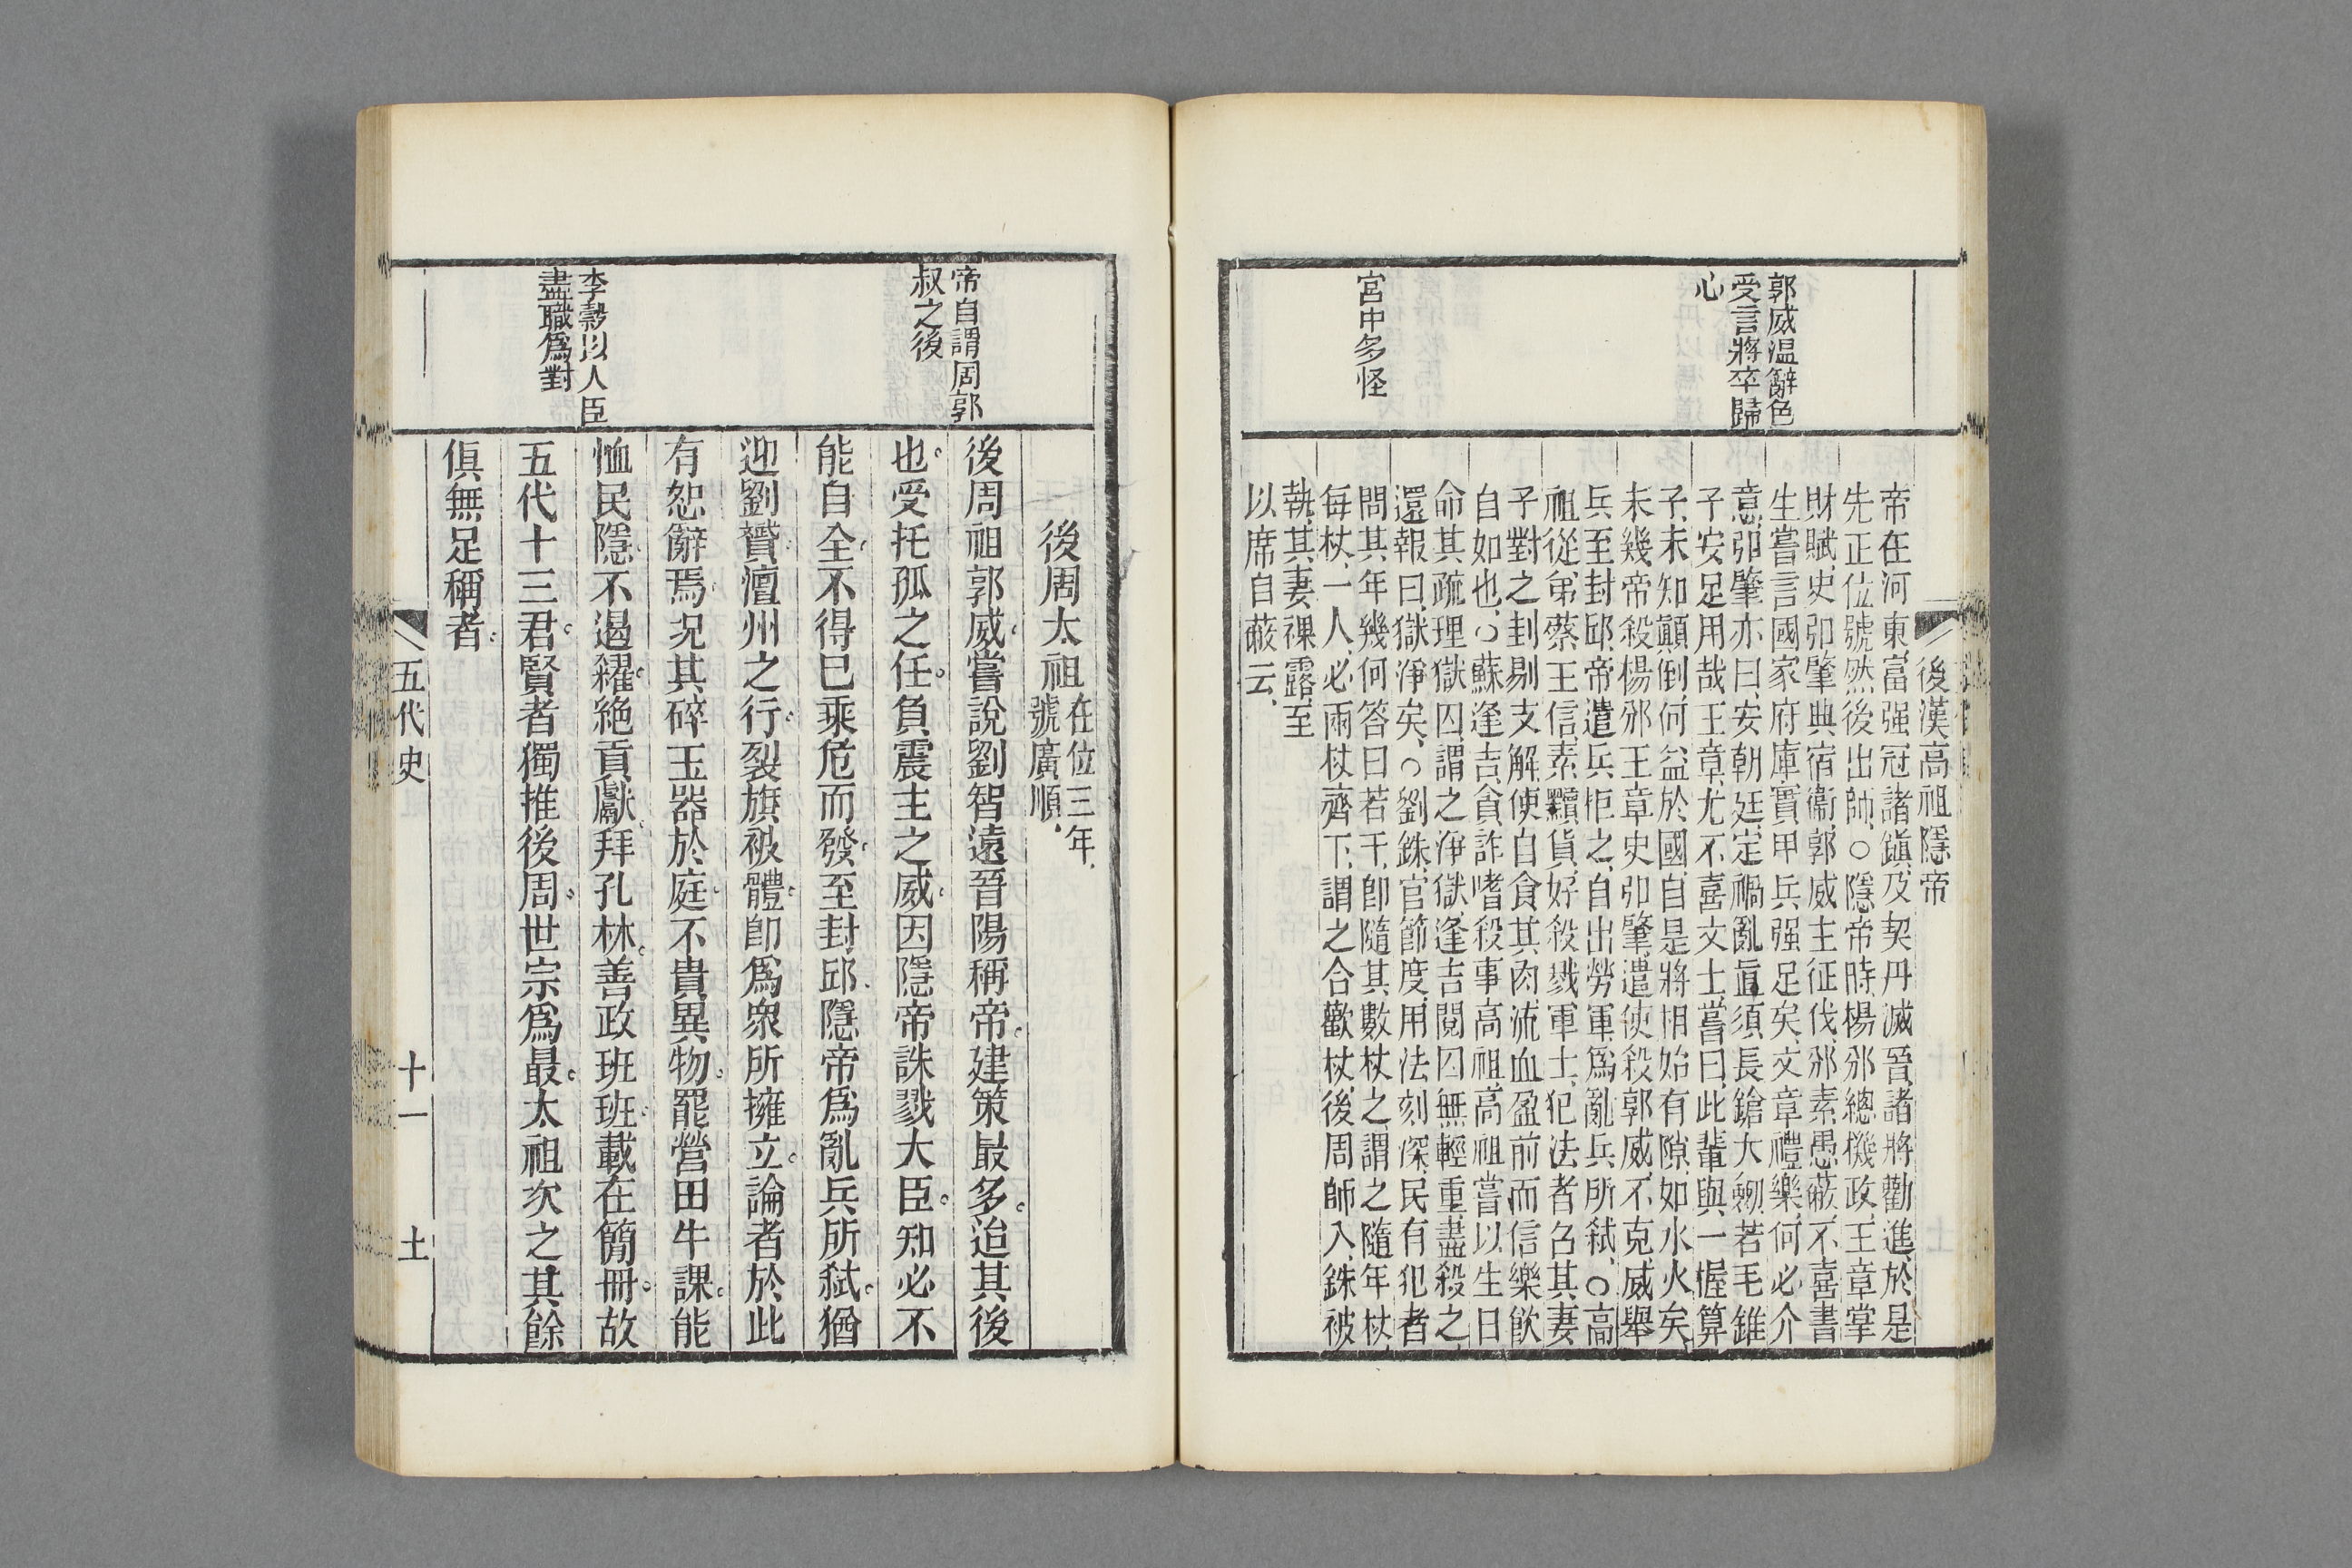 後漢高祖隱帝
郭威温辭色
受言將卒歸
心
宮中多怪
帝在河東富强冠諸鎮及契丹滅晉諸將勸進於是
先正位號然後出師○隱帝時楊邠總機政王章掌
財賦史弘肇典宿衞郭威主征伐邠素愚蔽不喜書
生嘗言國家府庫實甲兵强足矣文章禮樂何必介
意弘肇亦曰安朝廷定禍亂直須長鎗大劒若毛錐
子安足用哉王章尤不喜文士嘗曰此輩與一握算
子未知顚倒何益於國自是將相始有隙如水火矣
未幾帝殺楊邠王章史弘肇遣使殺郭威不克威舉
兵至封邱帝遣兵拒之自出勞軍爲亂兵所弑○高
祖從弟蔡王信素黷貨好殺戮軍士犯法者召其妻
子對之刲剔支解使自食其肉流血盈前而信樂飮
自如也○蘇逢吉貪詐嗜殺事高祖高祖嘗以生日
命其疏理獄囚謂之淨獄逢吉閱囚無輕重盡殺之
還報曰獄淨矣○劉銖官節度用法刻深民有犯者
問其年幾何答曰若干卽隨其數杖之謂之隨年杖
每杖一人必兩杖齊下謂之合歡杖後周師入銖被
執其妻裸露至
以席自蔽云
帝自謂周郭
叔之後
李穀以人臣
盡職爲對
後周太祖 在位三年 號廣順
後周祖郭威嘗說劉智遠晉陽稱帝建策最多迨其後
也受托孤之任負震主之威因隱帝誅戮大臣知必不
能自全不得已乘危而發至封邱隱帝爲亂兵所弑猶
迎劉贇澶州之行裂旗被體卽爲衆所擁立論者於此
有恕辭焉况其碎玉器於庭不貴異物罷營田牛課能
恤民隱不遏糴絶貢獻拜孔林善政班班載在簡冊故
五代十三君賢者獨推後周世宗爲最太祖次之其餘
俱無足稱者
五代史 十一 土